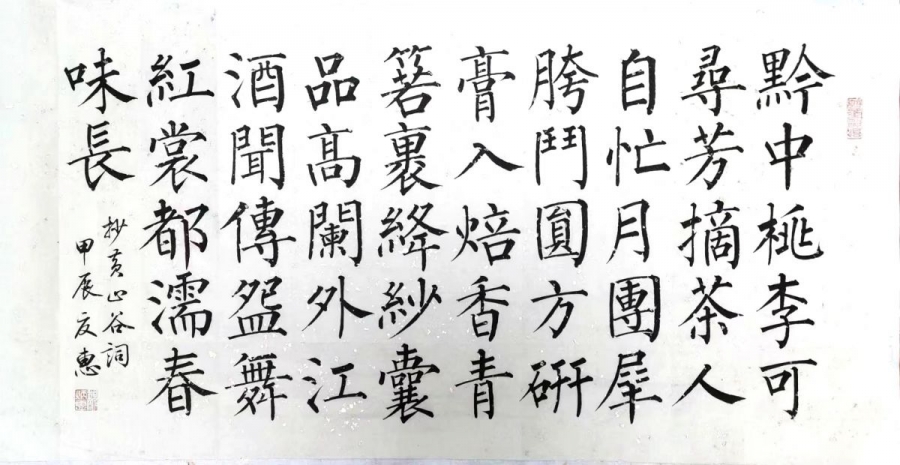 黔中桃李可
尋芳摘茶人
自忙月團犀
胯鬥圓方研
膏入焙香青
箬裹絳紗囊
品高聞外江
酒闌傳盌舞
紅裳都濡春
味長
抄黄山谷詞
甲辰友惠